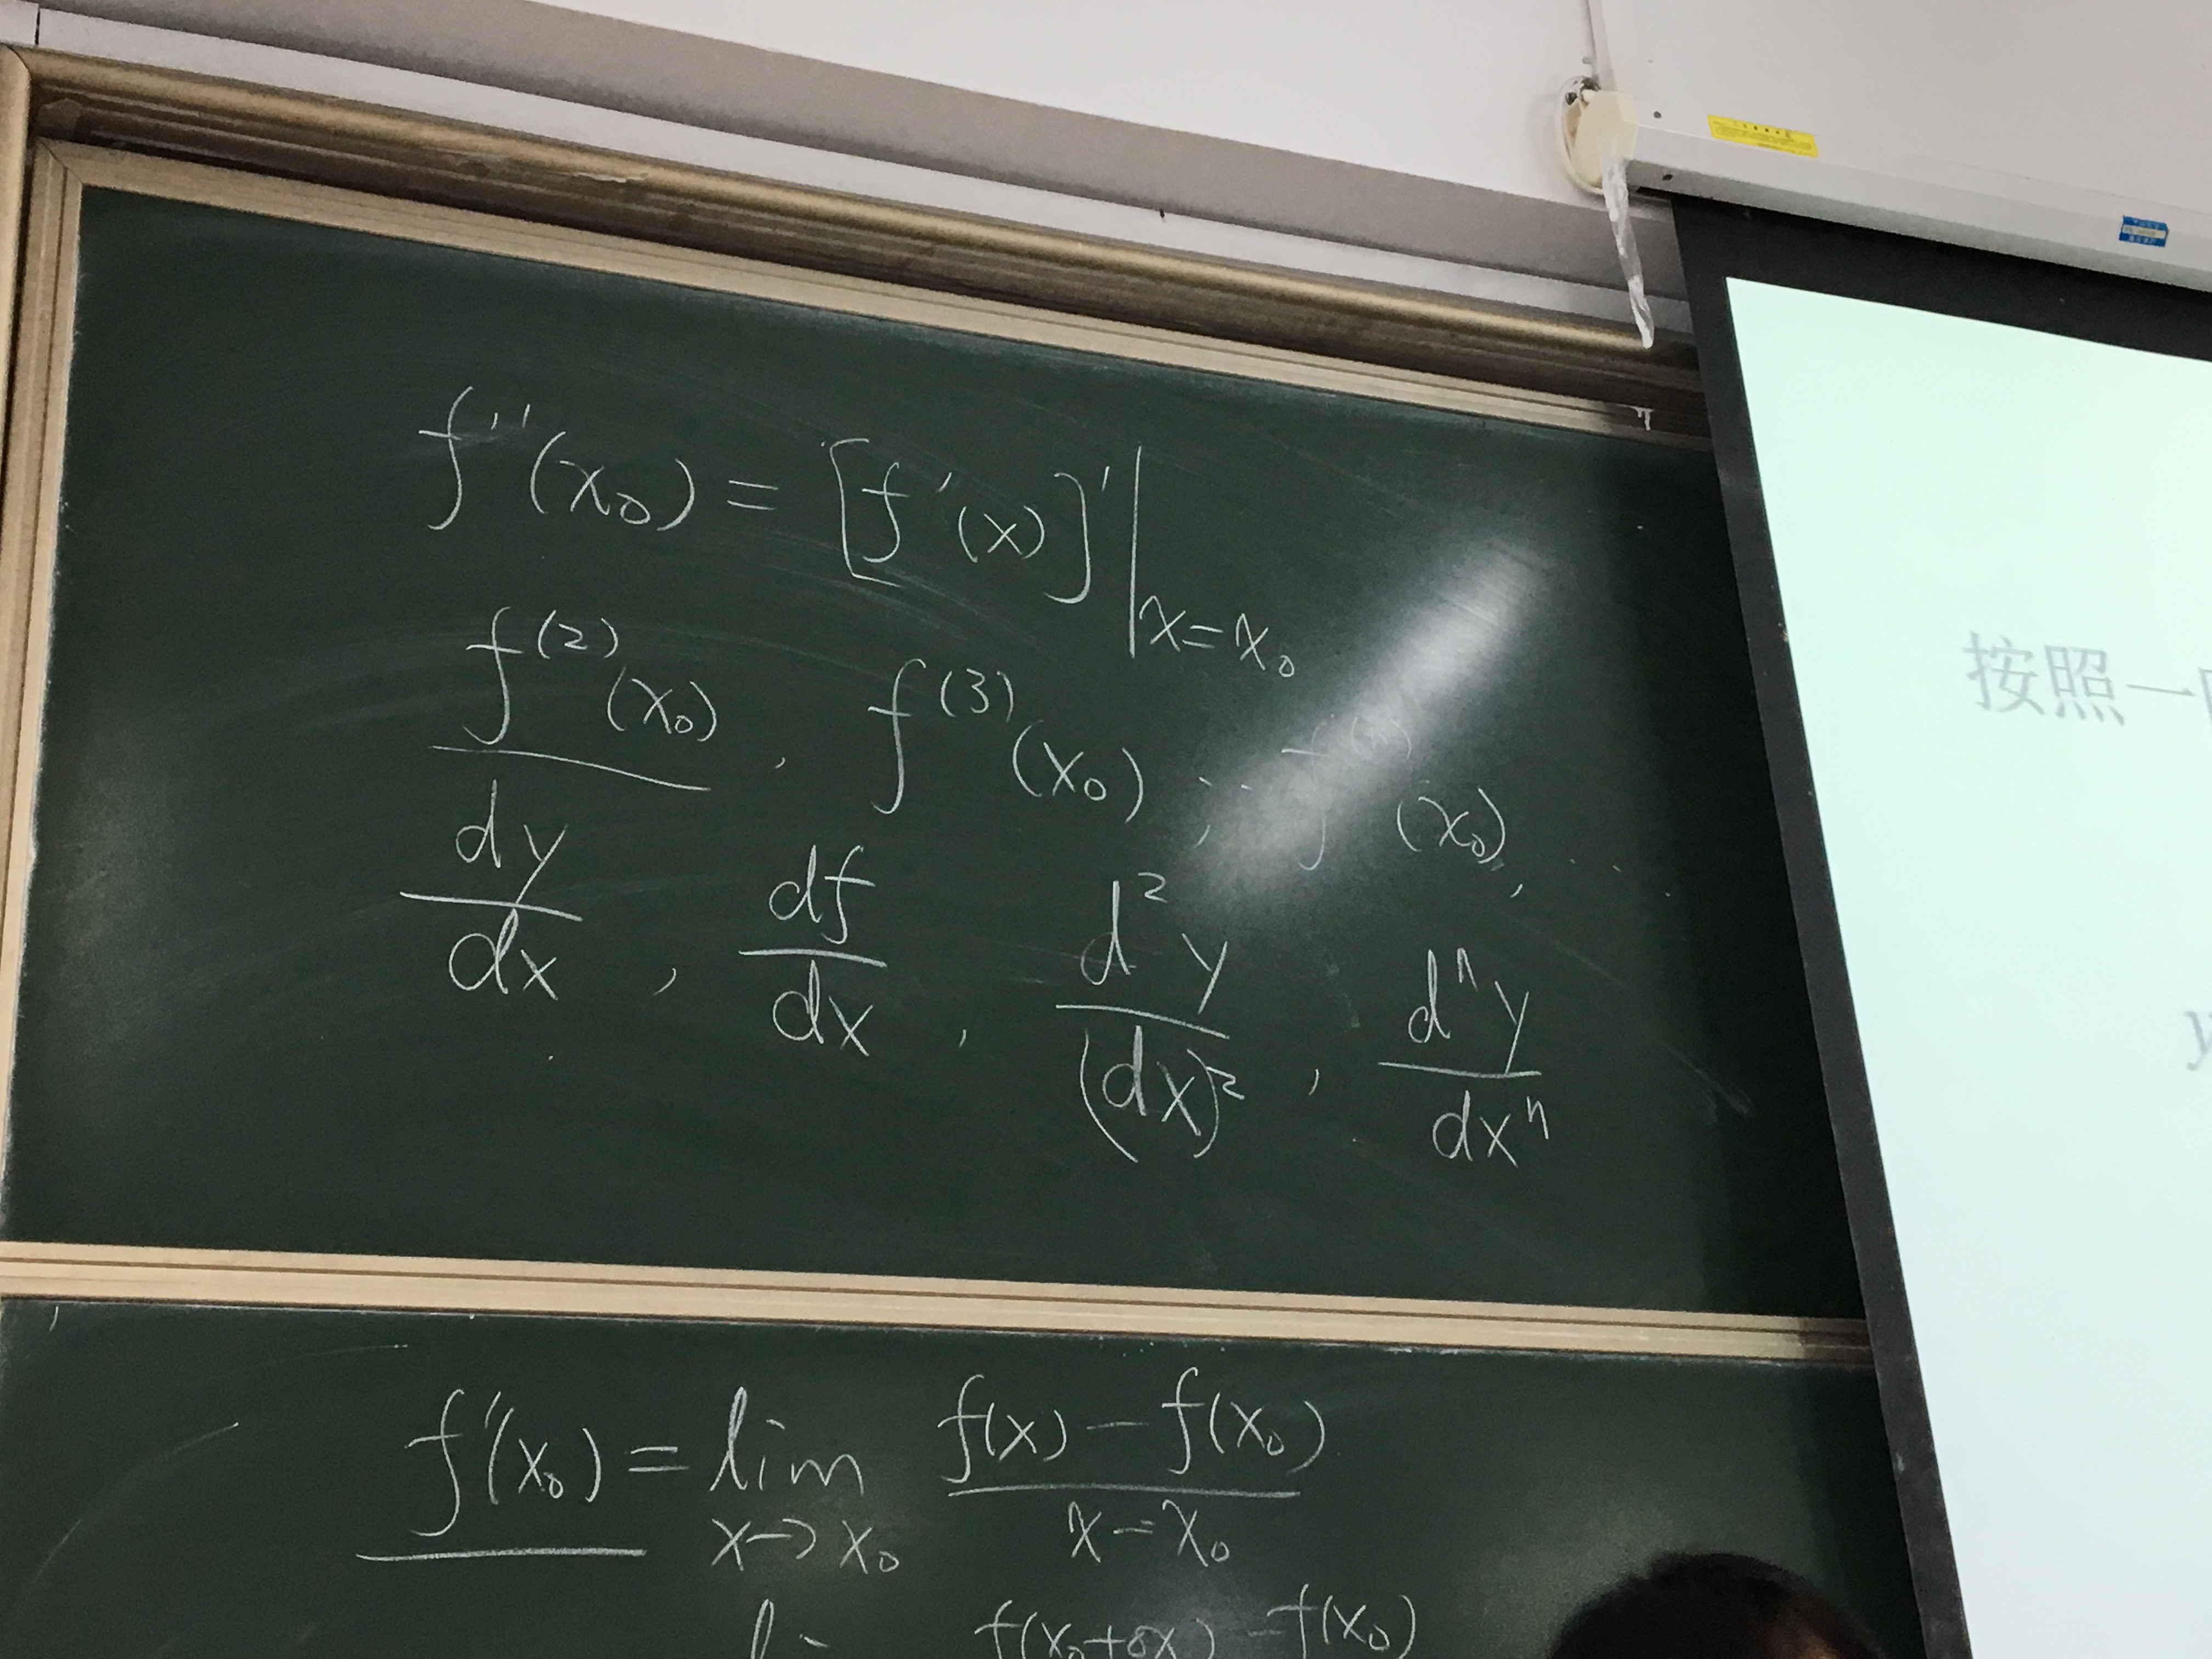 f''(x₀) = [f'(x)]'|ₓ₌ₓ₀
f⁽²⁾(x₀), f⁽³⁾(x₀), ... f⁽ⁿ⁾(x₀), ...
dy/dx, df/dx, d²y/(dx)², dⁿy/dxⁿ
f'(x₀) = lim x→x₀ (f(x) - f(x₀))/(x - x₀)
f(x₀+δx) - f(x₀)
按照一
y